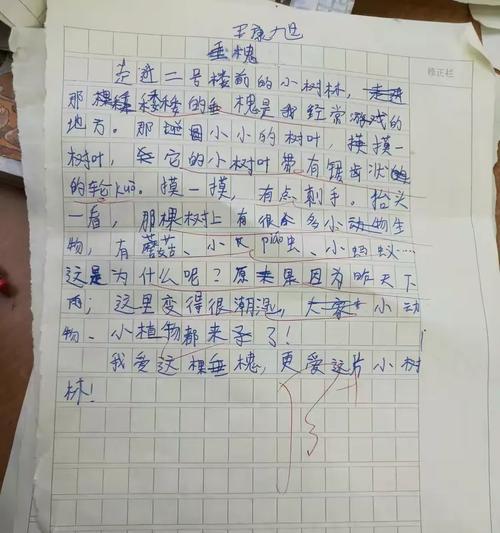 垂槐
修正栏
走近二号楼前的小树林,
那棵矮矮的垂槐是我经常游戏的
地方。那小小的树叶,摸一
树叶,它的小树叶带有锯齿状
的轮kuo。摸一摸,有点刺手。抬头
一看,那棵树上有很多小动物生
物,有蘑菇、小爬虫、小蚂蚁……
这是为什么呢?原来因为昨天下
雨;这里变得很潮湿,小动
物、小植物都来了!
我爱这棵垂槐,更爱这片小树
林!